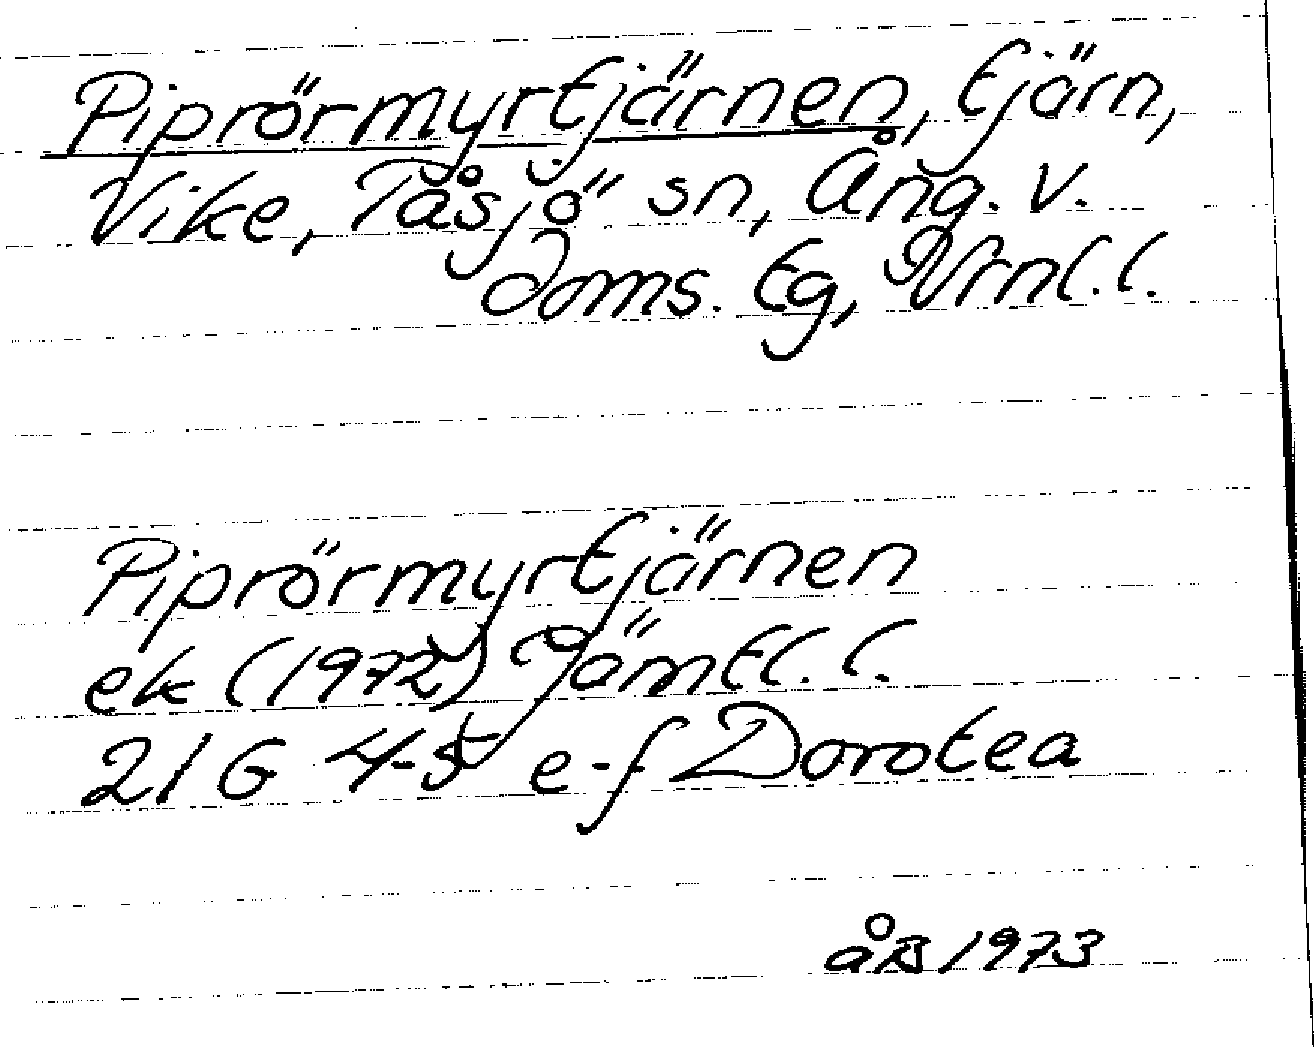 Piprörmyrtjärnen, tjärn,
Vike, Tåsjö sn, Ång. v.
doms. tg, Vrnl. l.
Piprörmyrtjärnen
ek (1972) Jämtl. l.
21 G 4-5 e-f Dorotea
åB 1973